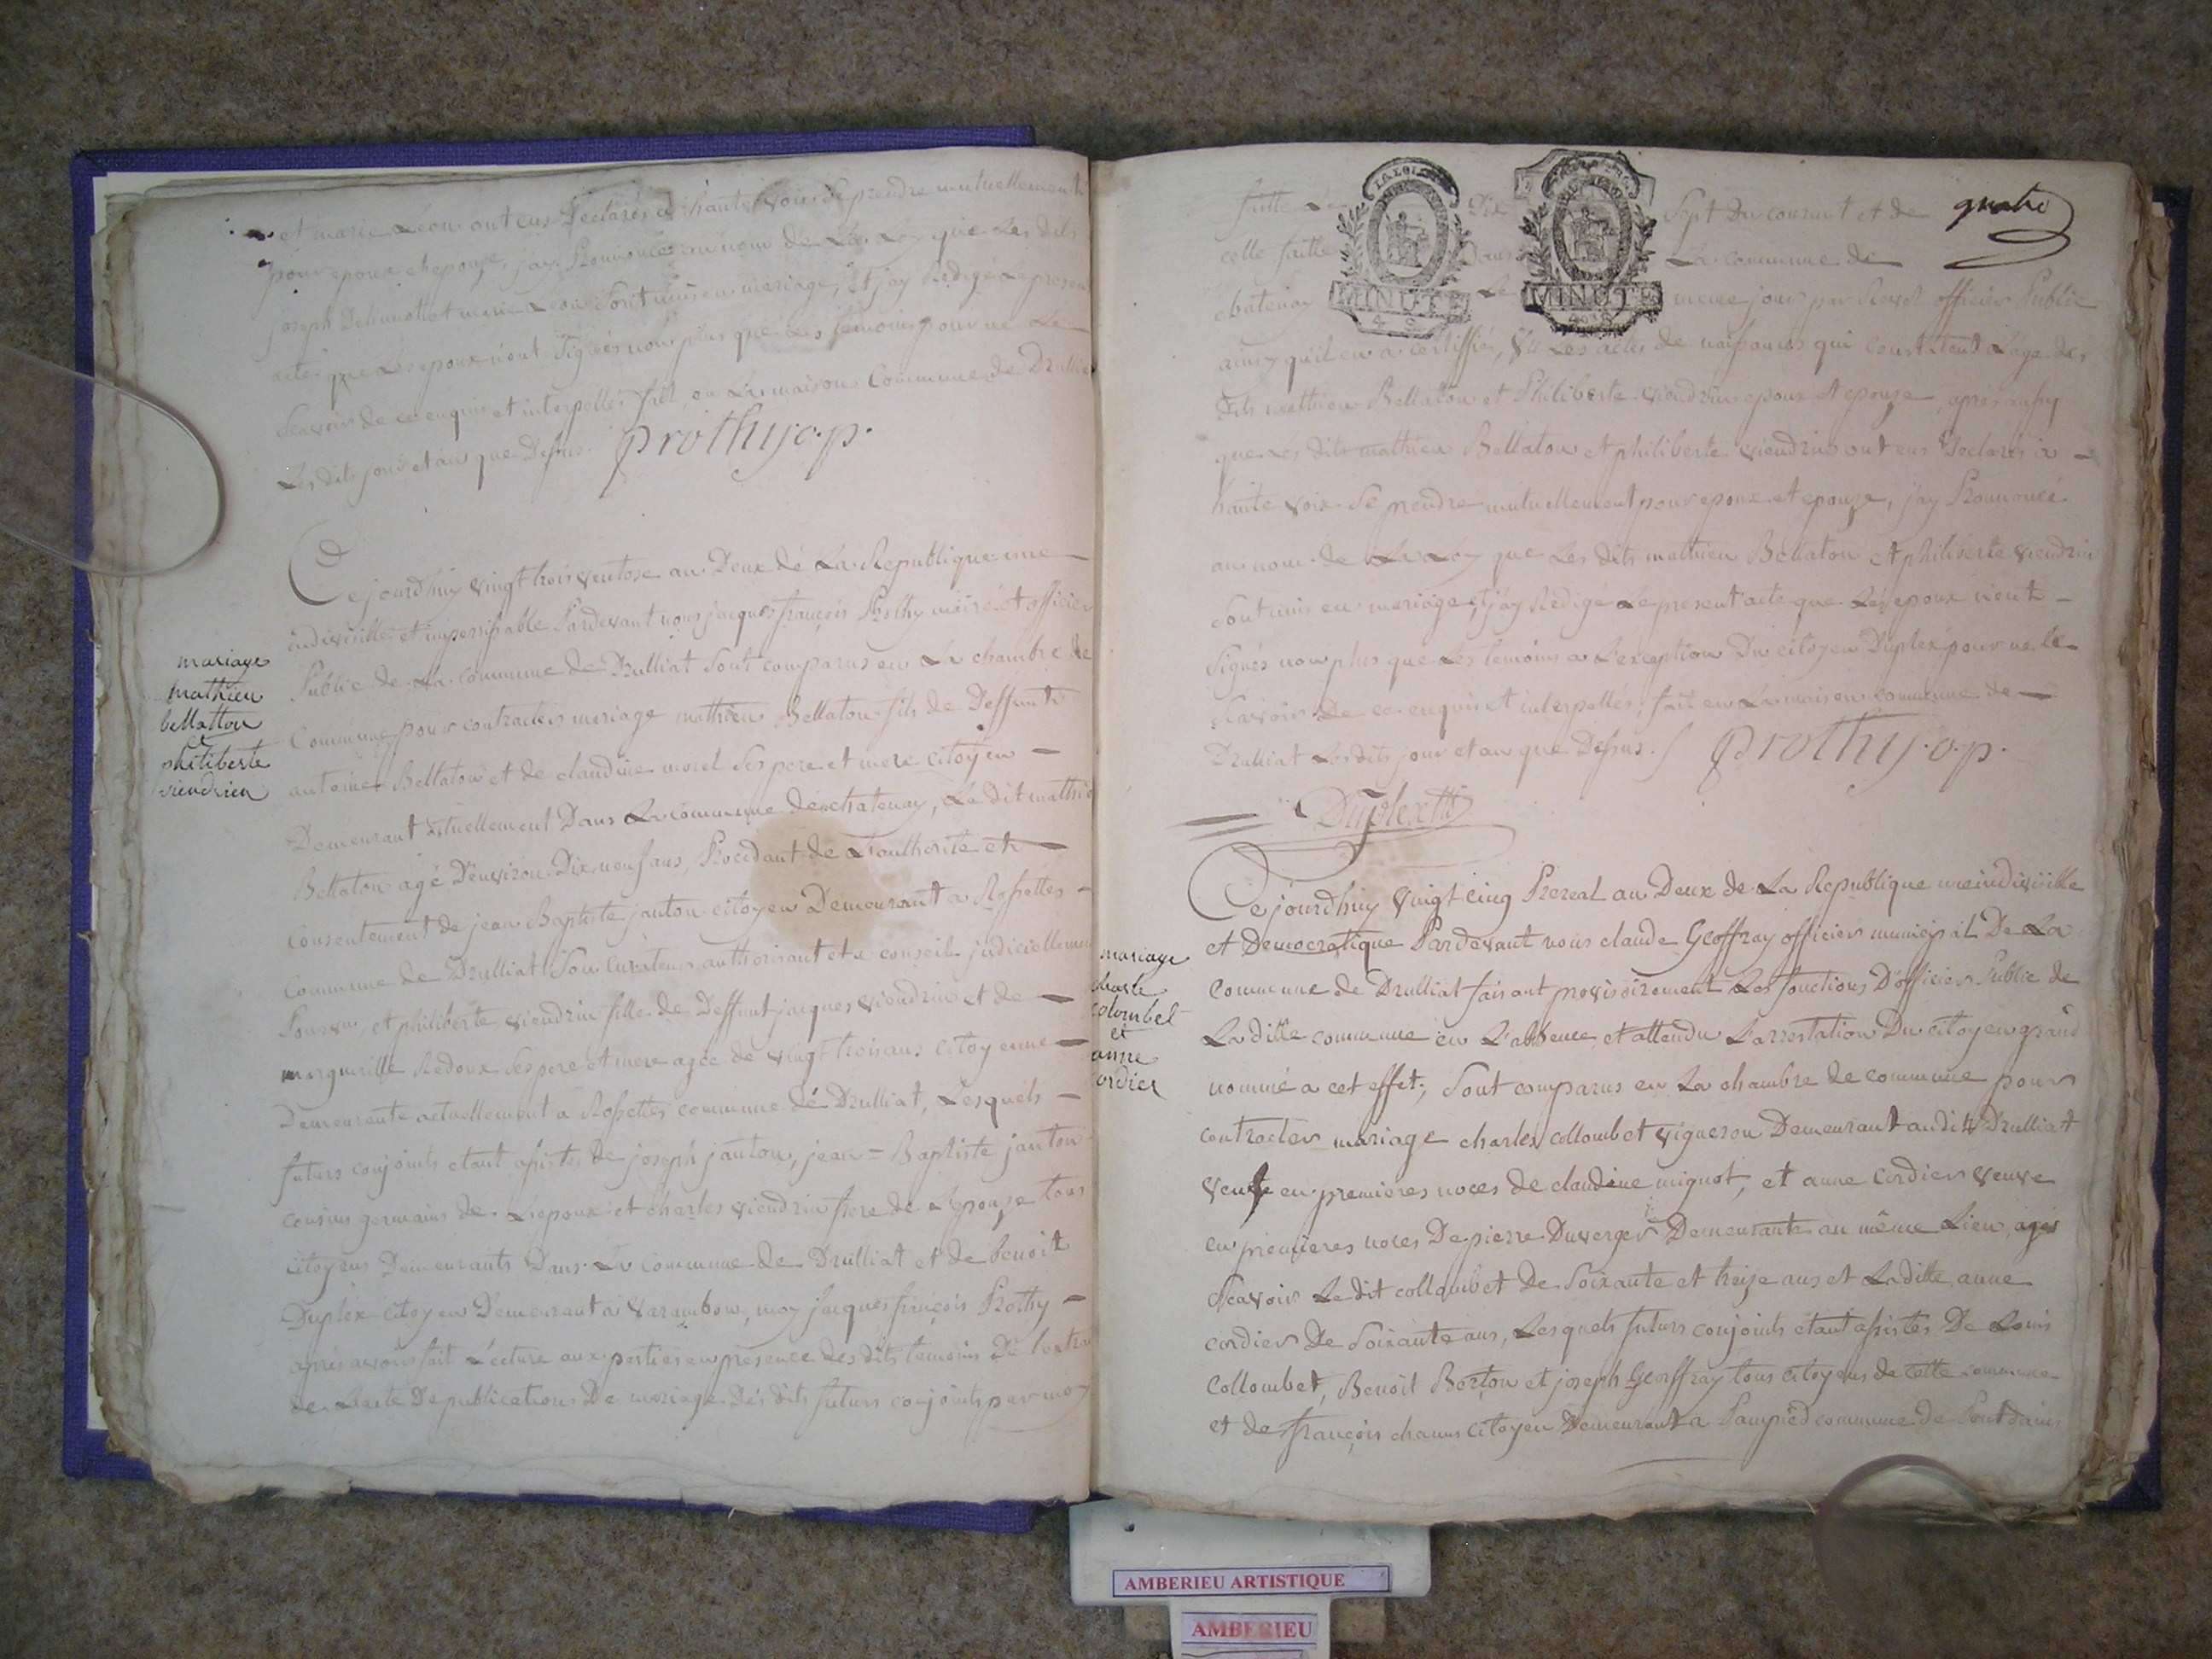 et marie Leon ont eus Declarés a haute voix Se prendre mutuellement
pour epoux et epouze, jay Prononcée au nom de La Loy que Les dits
joseph et marie Leon Sont unis en mariage, Et jay Redigé Le present
acte que Les epoux n'ont Signés non plus que Les temoins pour ne Le
Scavoir de ce enquis et interpellés fait en La maison Commune de Drulliat
Les dits jour et an que Dessus. Prothy o.p.
Cejourdhuy vingt trois ventose an Deux de La Republique une
indivisille et imperissable Pardevant nous jacques françois Prothy maire et officier
Public de La Commune de Drulliat Sont comparus en La chambre de
Commune pour contracter mariage mathieu Bellaton fils de Deffunts
antoine Bellaton et de claudine morel Ses pere et mere citoyen
Demeurant actuellement Dans La commune de chatenay, Le dit mathieu
Bellaton agé D'environ Dix neuf ans, Procedant de L'authorité et
Consentement de jean Baptiste janton citoyen Demeurant a Rossettes
Commune de Drulliat Son Curateur authorisant et a conseil judiciellement
Pourvu et philiberte viendrin fille de Deffunt jacques viendrin et de
marguerille Redoux Ses pere et mere agée de vingt trois ans citoyenne
Demeurante actuellement a Rossettes commune de Drulliat, Lesquels
futurs conjoints etant assistés de joseph janton, jean = Baptiste janton
cousins germains de L'epoux et charles viendrin frere de L'epouze tous
citoyens Demeurants Dans La Commune de Drulliat et de benoit
Duplex citoyen Demeurant a Varambon, moy jacques françois Prothy
après avoir fait Lecture aux parties en presence des dits temoins De l'extrait
de Lacte De publications De mariage des dits futurs conjoints par moy
mariage
mathieu
bellatton
et
philiberte
viendrien
quatre
faitte Le Dix Sept Du courant et de
celle faitte Dans La commune de
chatenay Le meme jour par officier Public
ainsy quil en a certiffié, Vu Les actes de naissances qui constatent Lage des
dits mathieu Bellaton et Philiberte viendrin epoux et epouze, après aussy
que Les dits mathieu Bellaton et philiberte viendrin ont eus Declarés a
haute voix Se prendre mutuellement pour epoux et epouze, j'ay Prononcé
au nom de La Loy que Les dits mathieu Bellaton et philiberte viendrin
Sont unis en mariage, Et jay Redigé Le present acte que Les epoux n'ont
Signés non plus que Les temoins a L'exception Du citoyen Duplex pour ne Le
Scavoir De ce enquis et interpellés, fait en La maison commune de
Drulliat Les dits jour et an que Dessus. / Prothy. o. p.
Duplex
LA LOI
MINUTE
4 S
MINUTE
Cejourdhuy vingt cinq Prereal an Deux de La Republique une indivisille
et Democratique Pardevant nous claude Geoffray officier municipal De La
Commune de Drulliat faisant provisoirement Les fonctions D'officier Public de
La ditte commune en L'absence et attendu Larrestation Du citoyen grand
nommé a cet effet; Sont comparus en La chambre de commune pour
contracter mariage charles collombet vigneron Demeurant audit Drulliat
Veuf en premieres noces de claudine mignot, et anne Cordier veuve
en premieres noces De pierre Duverger Demeurante au même Lieu, agés
Scavoir Le dit collombet de Soixante et treize ans et Laditte anne
cordier De Soixante ans, Lesquels futurs conjoints etant assistés De Louis
Collombet, Benoit Berton et joseph Geoffray tous citoyens de cette commune
et de françois chanu citoyen Demeurant a Lampied commune de Pontdain
mariage
charle
colombet
et
anne
cordier
AMBERIEU ARTISTIQUE
AMBERIEU